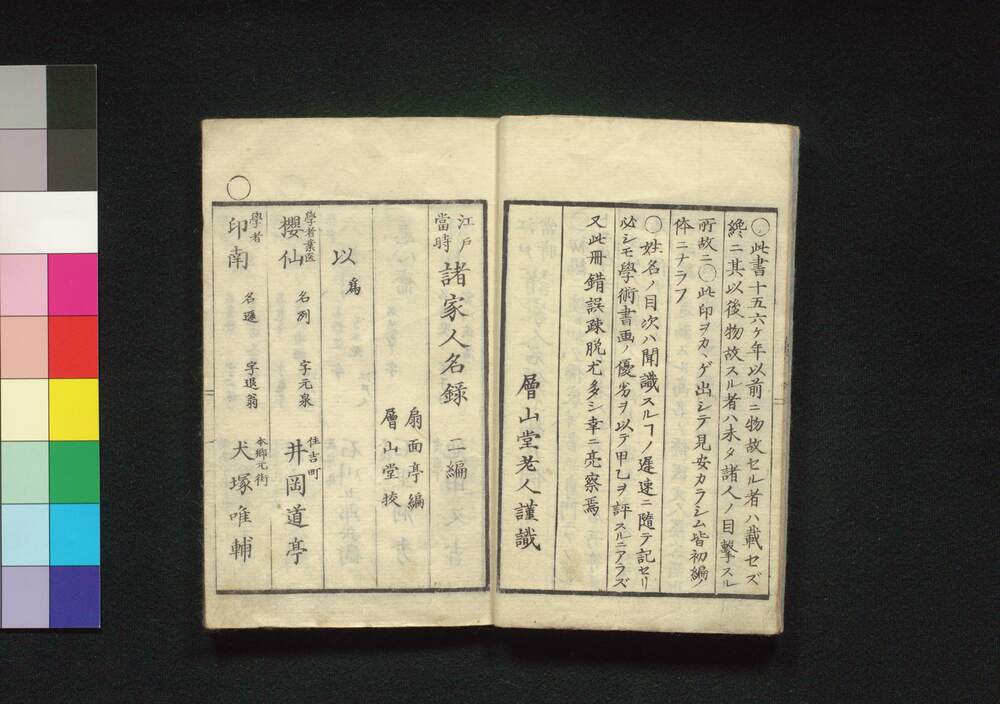 〇此書十五六ケ年以前ニ物故セル者ハ載セズ
纔ニ其以後物故スル者ハ未タ諸人ノ目撃スル
所故ニ〇此印ヲカヽゲ出シテ見安カラシム皆初編ノ
体ニナラフ
〇姓名ノ目次ハ聞識スルヿノ遅速ニ隨テ記セリ
必シモ學術書画ノ優劣ヲ以テ甲乙ヲ評スルニアラズ
又此冊錯誤疎脱尤多シ幸ニ亮察焉
層山堂老人謹識
江戸當時 諸家人名録 二編
扇面亭編
層山堂挍
以爲
學者業医 櫻仙 名列 字元泉 住吉町 井岡道亭
〇 學者 印南 名遜 字退翁 本郷元街 犬塚唯輔